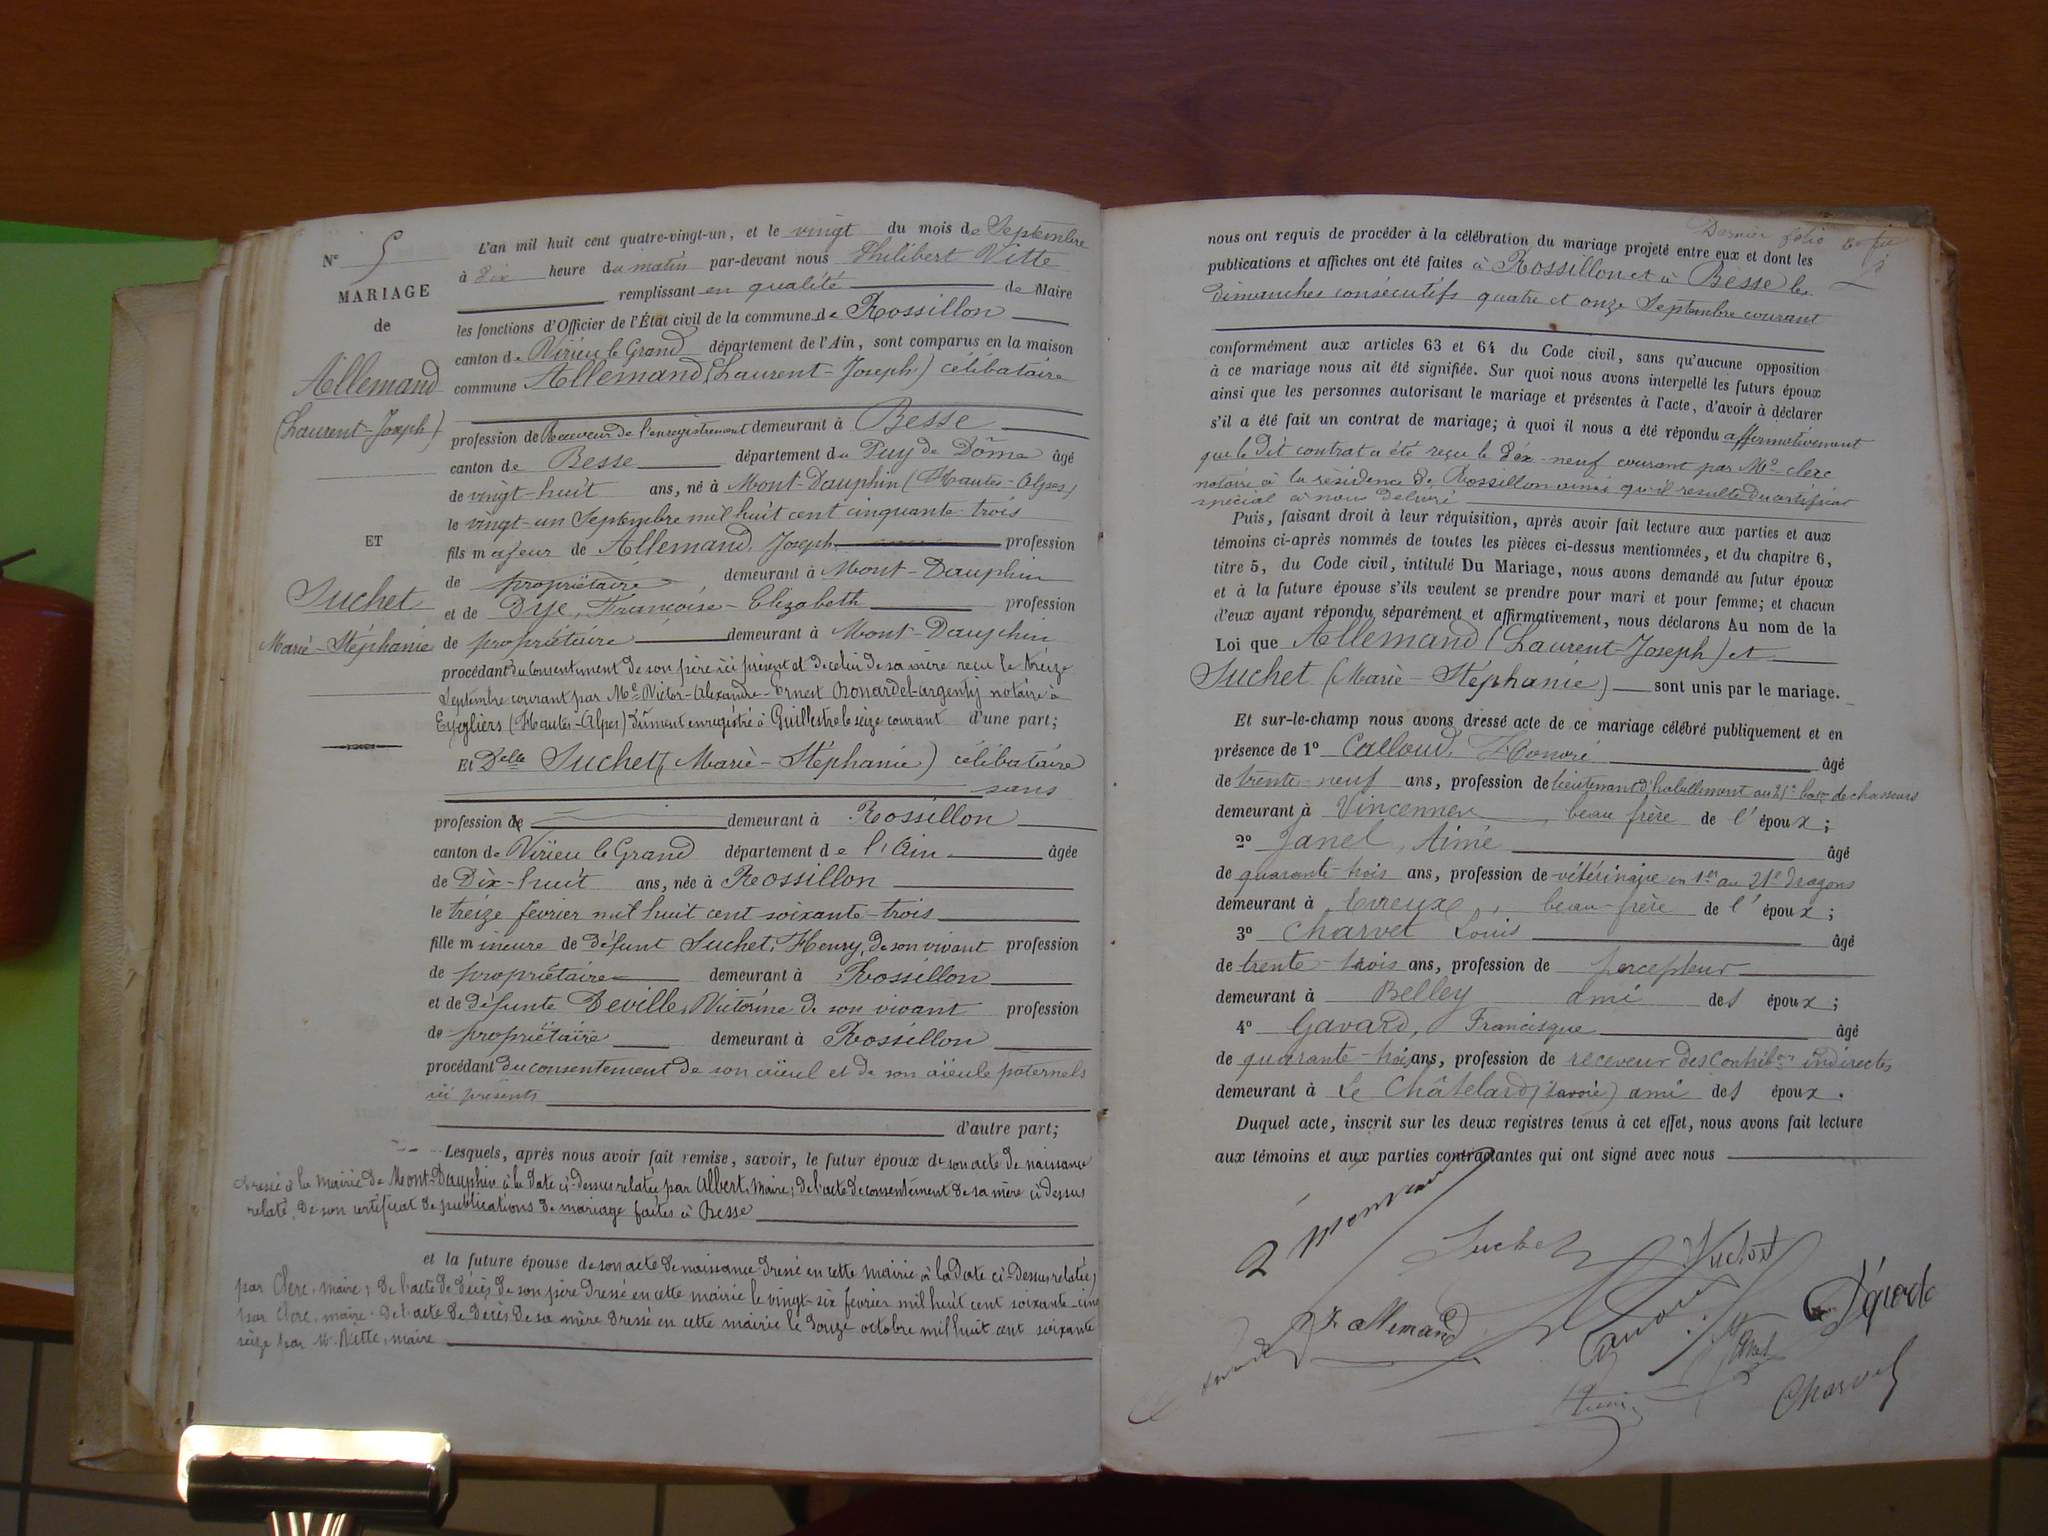 N° 5
MARIAGE
de
Allemand
(Laurent-Joseph)
ET
Suchet
Marie-Stéphanie
L'an mil huit cent quatre-vingt-un, et le vingt du mois de Septembre
à dix heure du matin par-devant nous Philibert Vitte
remplissant en qualité de Maire
les fonctions d'Officier de l'État civil de la commune de Rossillon
canton de Virieu le Grand département de l'Ain, sont comparus en la maison
commune Allemand (Laurent-Joseph) célibataire
profession de Receveur de l'enregistrement demeurant à Besse
canton de Besse département du Puy de Dôme âgé
de vingt-huit ans, né à Mont-Dauphin (Hautes-Alpes)
le vingt-un Septembre mil huit cent cinquante-trois
fils majeur de Allemand, Joseph profession
de propriétaire demeurant à Mont-Dauphin
et de Dye, Françoise-Elizabeth profession
de propriétaire demeurant à Mont-Dauphin
procédant du consentement de son père ici présent et de celui de sa mère reçu le treize
Septembre courant par Me Victor-Alexandre-Ernest notaire à
Eygliers (Hautes-Alpes) dûment enregistré à Guillestre le seize courant d'une part;
Et Delle Suchet (Marie-Stéphanie) célibataire
sans
profession de demeurant à Rossillon
canton de Virieu le Grand département de l'Ain âgée
de Dix-huit ans, née à Rossillon
le treize février mil huit cent soixante-trois
fille mineure de défunt Suchet, Henry, de son vivant profession
de propriétaire demeurant à Rossillon
et de défunte Deville, Victorine de son vivant profession
de propriétaire demeurant à Rossillon
procédant du consentement de son aïeul et de son aïeule paternels
ici présents
d'autre part;
Lesquels, après nous avoir fait remise, savoir, le futur époux de son acte de naissance
dressé à la mairie de Mont-Dauphin à la date ci-dessus relatée par Albert, maire; de l'acte de consentement de sa mère ci-dessus
relaté, de son certificat de publications de mariage faites à Besse
et la future épouse de son acte de naissance dressé en cette mairie à la date ci-dessus relatée,
par Clerc, maire; de l'acte de décès de son père dressé en cette mairie le vingt-six février mil huit cent soixante-cinq
par Clerc, maire. de l'acte de décès de sa mère dressé en cette mairie le douze octobre mil huit cent soixante
seize par Vitte, maire
Dernier folio
nous ont requis de procéder à la célébration du mariage projeté entre eux et dont les
publications et affiches ont été faites à Rossillon et à Besse les
dimanches consécutifs quatre et onze Septembre courant
conformément aux articles 63 et 64 du Code civil, sans qu'aucune opposition
à ce mariage nous ait été signifiée. Sur quoi nous avons interpellé les futurs époux
ainsi que les personnes autorisant le mariage et présentes à l'acte, d'avoir à déclarer
s'il a été fait un contrat de mariage; à quoi il nous a été répondu affirmativement
que le dit contrat a été reçu le dix-neuf courant par Me Clerc
notaire à la résidence de Rossillon ainsi qu'il résulte du certificat
spécial à nous délivré
Puis, faisant droit à leur réquisition, après avoir fait lecture aux parties et aux
témoins ci-après nommés de toutes les pièces ci-dessus mentionnées, et du chapitre 6,
titre 5, du Code civil, intitulé Du Mariage, nous avons demandé au futur époux
et à la future épouse s'ils veulent se prendre pour mari et pour femme; et chacun
d'eux ayant répondu séparément et affirmativement, nous déclarons Au nom de la
Loi que Allemand (Laurent-Joseph) et
Suchet (Marie-Stéphanie) sont unis par le mariage.
Et sur-le-champ nous avons dressé acte de ce mariage célébré publiquement et en
présence de 1° Calloud, Honoré âgé
de trente-neuf ans, profession de lieutenant d'habillement au 21e de chasseurs
demeurant à Vincennes, beau frère de l'époux;
2° Janel, Aimé âgé
de quarante-trois ans, profession de vétérinaire en 1er au 21e Dragons
demeurant à Evreux, beau-frère de l'époux;
3° Charvet Louis âgé
de trente-trois ans, profession de percepteur
demeurant à Belley ami des époux;
4° Gavard, Francisque âgé
de quarante-trois ans, profession de receveur des Contribons indirectes
demeurant à Le Châtelard (Savoie) ami des époux.
Duquel acte, inscrit sur les deux registres tenus à cet effet, nous avons fait lecture
aux témoins et aux parties contractantes qui ont signé avec nous
Suchet
Suchet
Allemand
Janel
Charvet